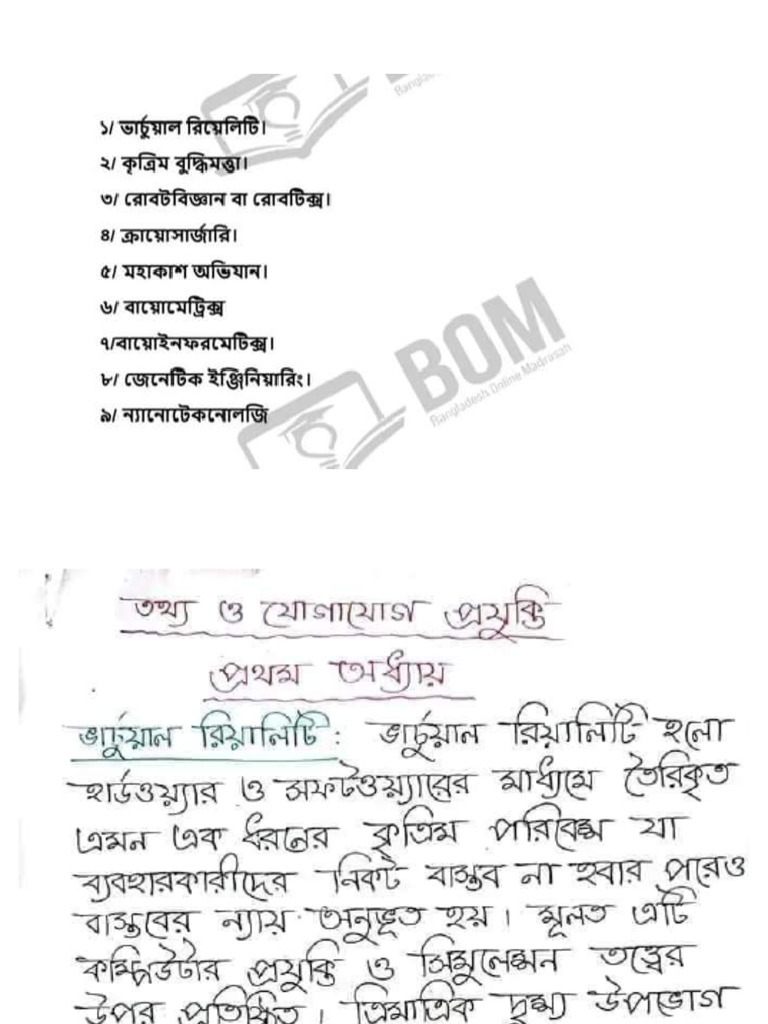 Bangladesh
১/ ভার্চুয়াল রিয়েলিটি।
২/ কৃত্রিম বুদ্ধিমত্তা।
৩/ রোবটবিজ্ঞান বা রোবটিক্স।
৪/ ক্রায়োসার্জারি।
৫/ মহাকাশ অভিযান।
৬/ বায়োমেট্রিক্স
৭/বায়োইনফরমেটিক্স।
৮/ জেনেটিক ইঞ্জিনিয়ারিং।
৯/ ন্যানোটেকনোলজি
BOM
Bangladesh Online Madrasah
তথ্য ও যোগাযোগ প্রযুক্তি
প্রথম অধ্যায়
ভার্চুয়াল রিয়ালিটি: ভার্চুয়াল রিয়ালিটি হলো
হার্ডওয়্যার ও সফটওয়্যারের মাধ্যমে তৈরিকৃত
এমন এক ধরনের কৃত্রিম পরিবেশ যা
ব্যবহারকারীদের নিকট বাস্তব না হবার পরেও
বাস্তবের ন্যায় অনুভূত হয়। মূলত এটি
কম্পিউটার প্রযুক্তি ও সিমুলেশন তত্ত্বের
উপর প্রতিষ্ঠিত। ত্রিমাত্রিক দৃশ্য উপভোগ